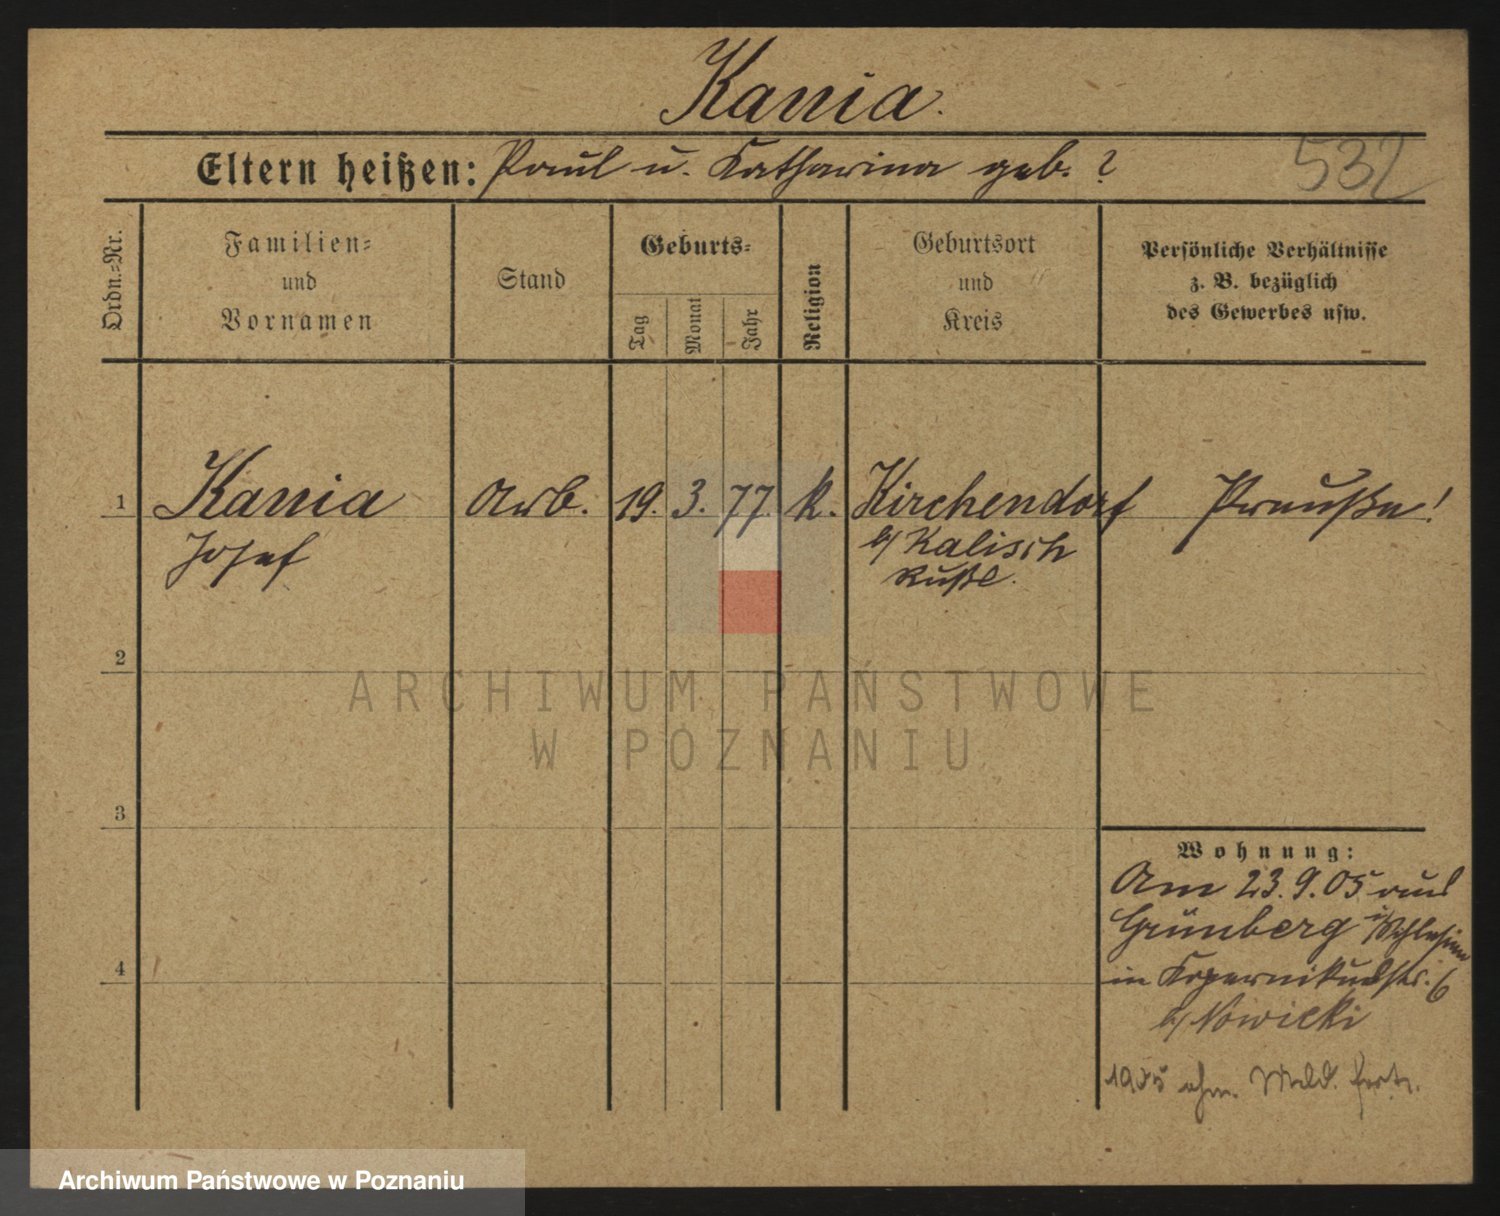 Kania.
Eltern heißen: Paul u. Katharina geb. ?
532
Ordn.=Nr.
Familien=
und
Vornamen
Stand
Geburts=
Tag
Monat
Jahr
Religion
Geburtsort
und
Kreis
Persönliche Verhältnisse
z. B. bezüglich
des Gewerbes usw.
1 Kania Arb. 19. 3. 77. k. Kirchendorf Preuße!
Josef
b/ Kalisch
Rußl.
2
ARCHIWUM PAŃSTWOWE
W POZNANIU
3
Wohnung:
Am 23.9.05 aus
Grünberg i/Schlesien
4
in Kopernikusstr. 6
b/ Nowicki
1905 ohne Meld. fort.
Archiwum Państwowe w Poznaniu